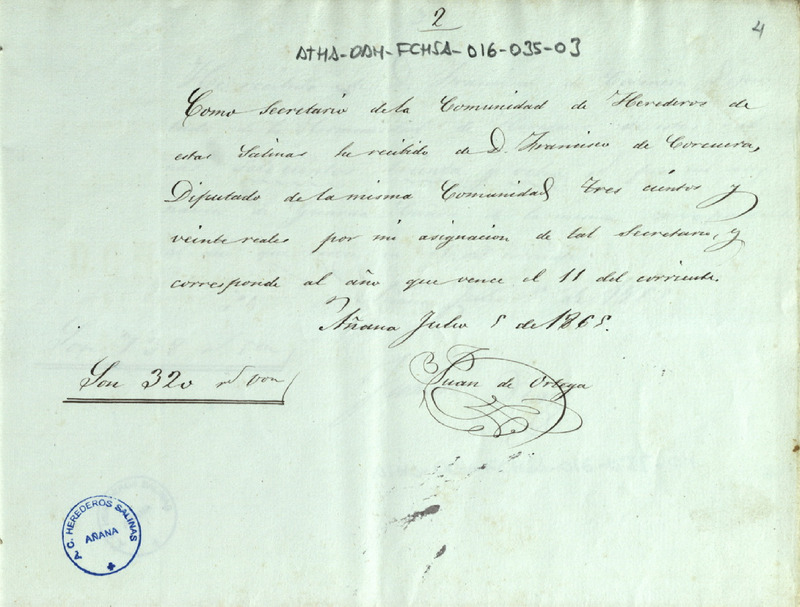 2
4
ATHA-DAH-FCHSA-016-035-03
Como Secretario de la Comunidad de Herederos de
estas Salinas he recibido de D. Francisco de Corcuera,
Diputado de la misma Comunidad, Tres cientos y
veinte reales por mi asignacion de tal Secretario, y
corresponde al año que vence el 11 del corriente.
Añana Julio 5 de 1865.
Juan de Ortega
Son 320 rs von
C. HEREDEROS SALINAS
AÑANA